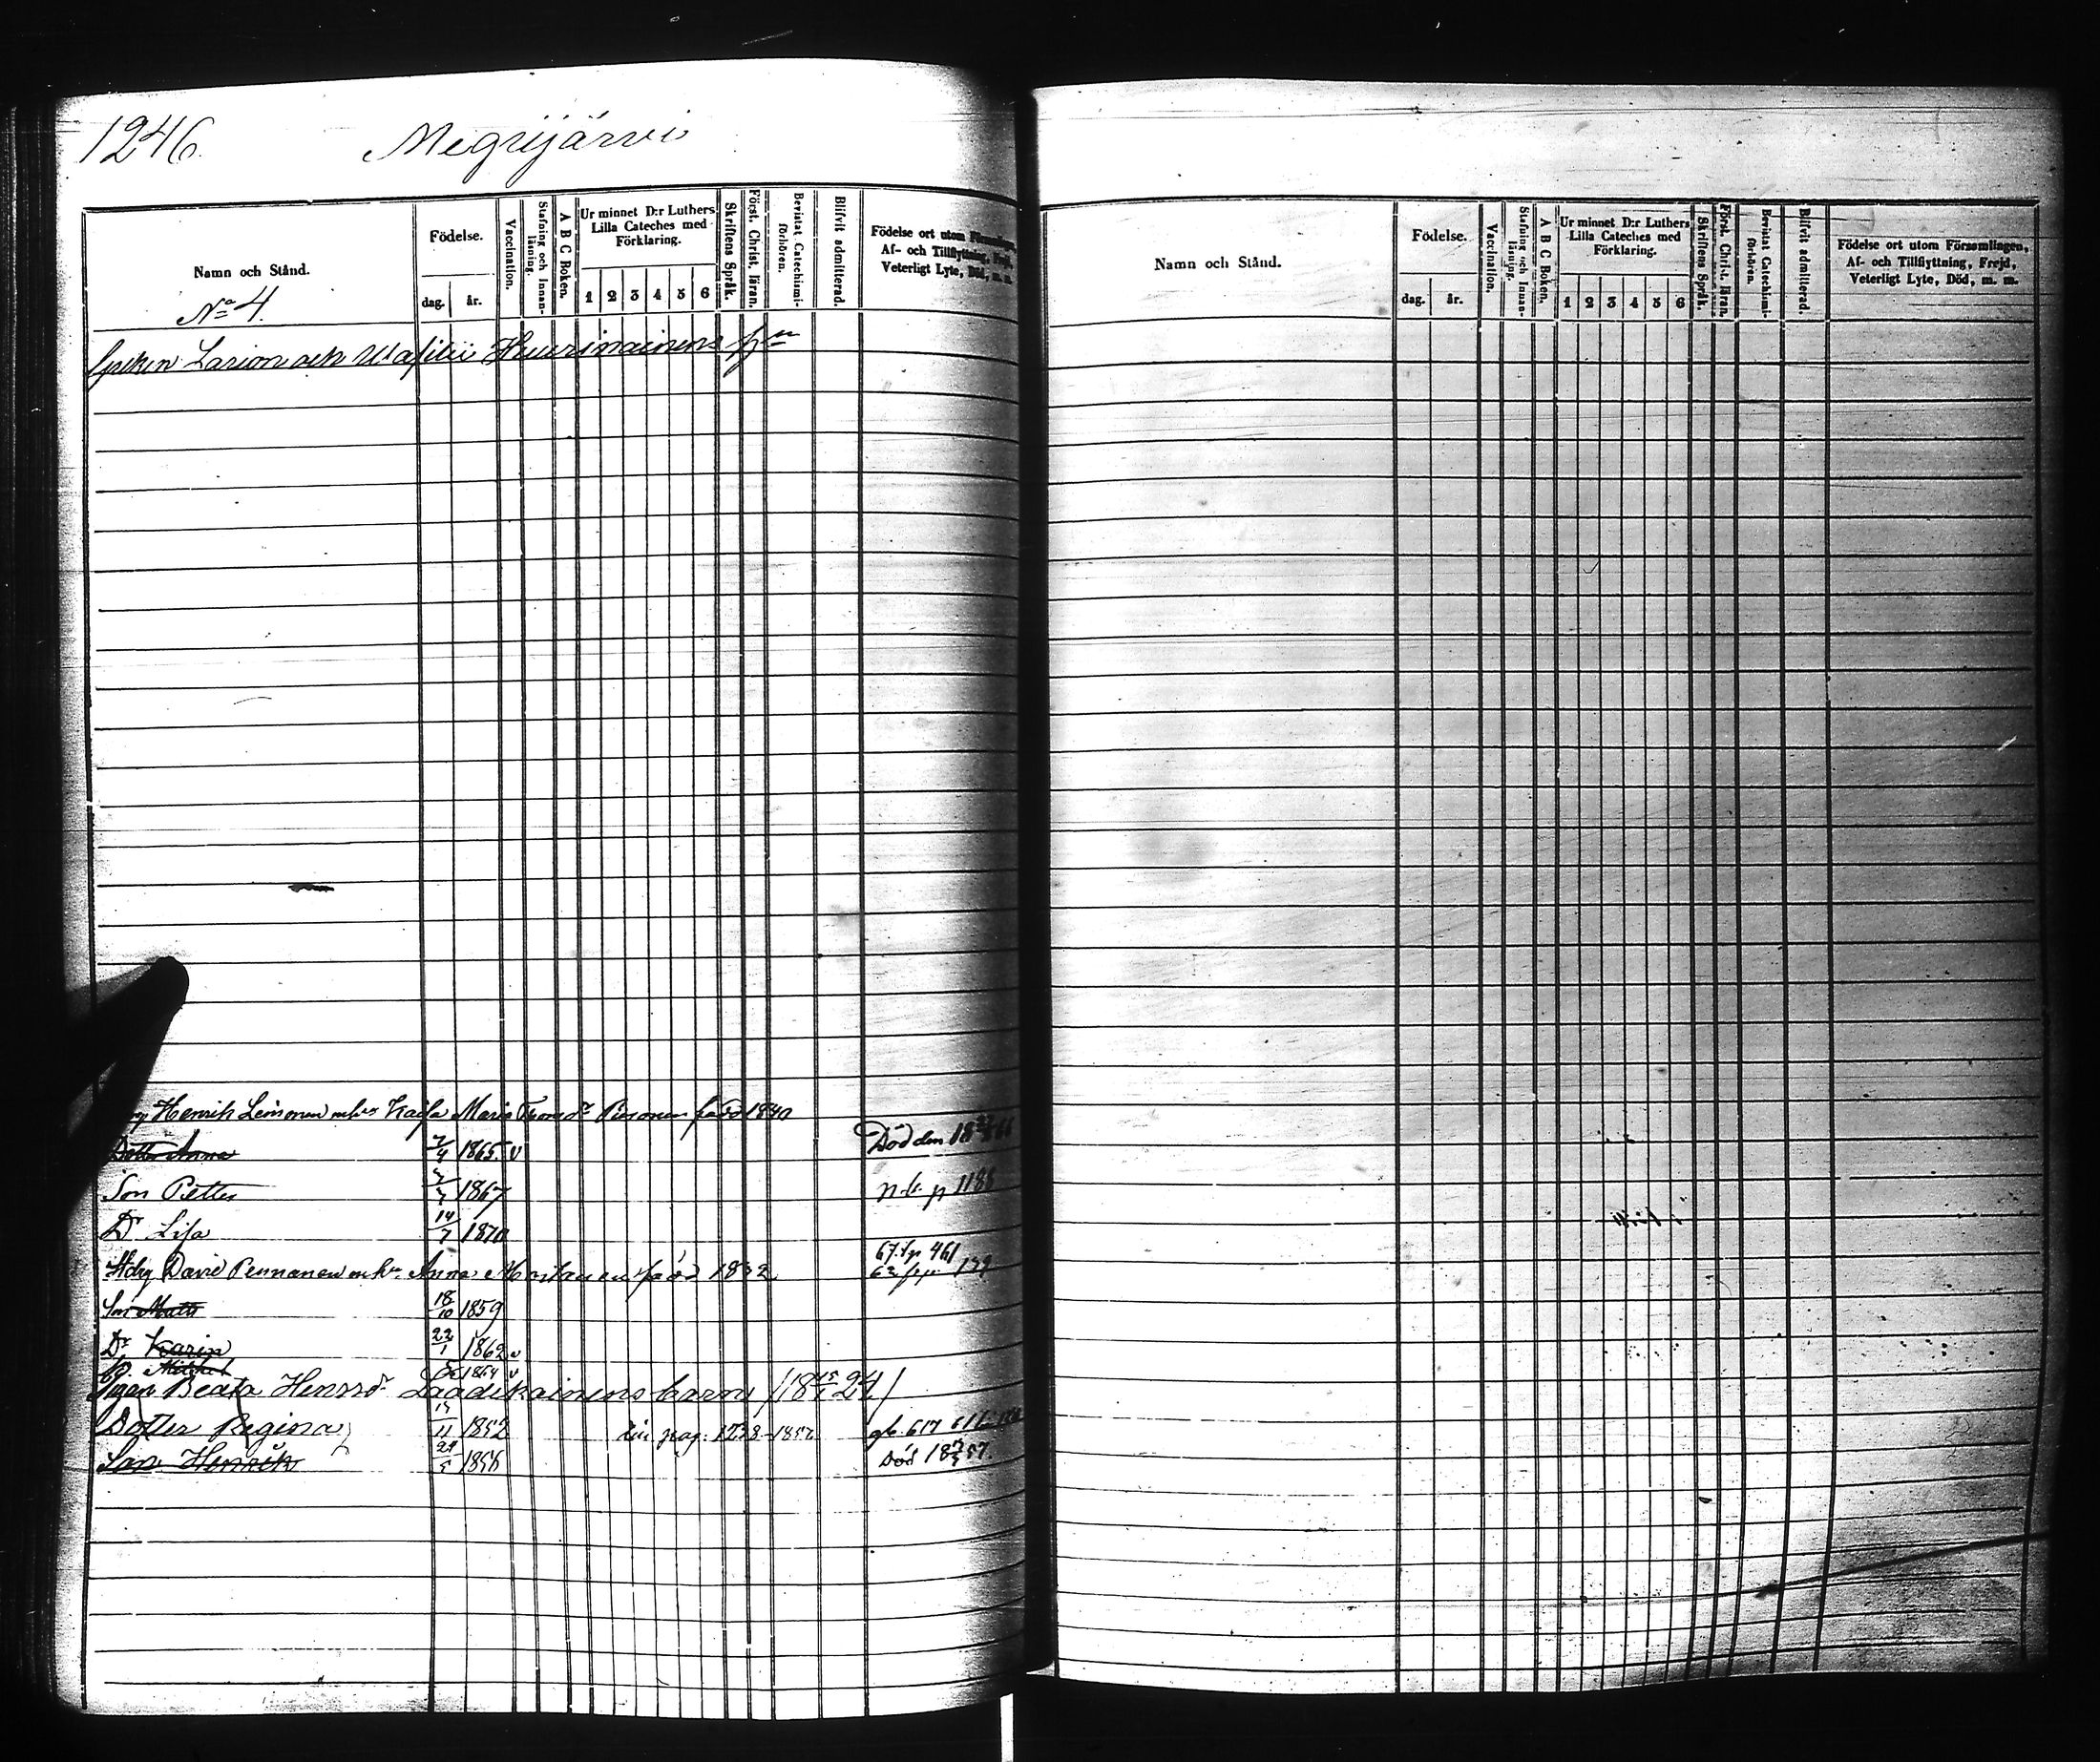 1246.
Megrijärvi
Namn och Stånd.
Födelse.
dag. år.
Vaccination.
Stafning och Innan-läsning.
A B C Boken.
Ur minnet D:r Luthers Lilla Cateches med Förklaring.
1 2 3 4 5 6
Skriftens Språk.
Först. Christ. läran.
Bevistat Catechismi-förhören.
Blifvit admitterad.
Födelse ort utom Församlingen,
Af- och Tillflyttning, Frejd,
Veterligt Lyte, Död, m. m.
No 4.
Greken Larion och Wasilii Huurinainens
Henrik Leinonen Kaisa Maria född 1840
Dotter Anna 7/4 1865 v Död den
Son Petter 1867 p 1188
Dr Lisa 14/7 1870
David Pennanen Anna född 1832
67. 461
Son Matts 18/10 1859
Dr Karin 22/1 1862 v
Michel 1864 v
Pigan Beata Henrsdr Laadikainens barn
Dotter Regina 11 1852 pag. 1238 - 1857 gb. 617
Son Henrik 1856 Död
Namn och Stånd.
Födelse.
dag. år.
Vaccination.
Stafning och Innan-läsning.
A B C Boken.
Ur minnet D:r Luthers Lilla Cateches med Förklaring.
1 2 3 4 5 6
Skriftens Språk.
Först. Christ. läran.
Bevistat Catechismi-förhören.
Blifvit admitterad.
Födelse ort utom Församlingen,
Af- och Tillflyttning, Frejd,
Veterligt Lyte, Död, m. m.